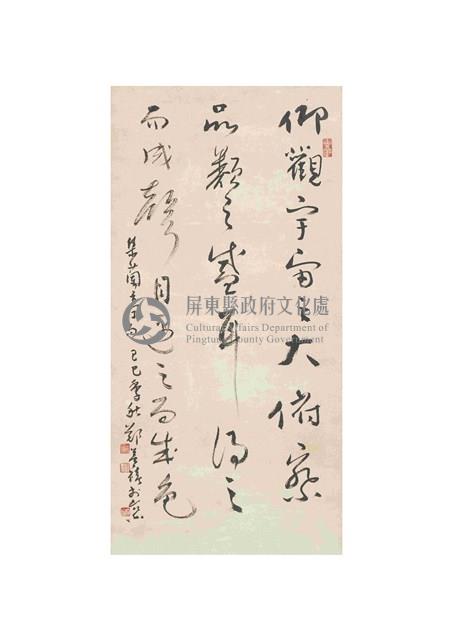 仰觀宇宙之大俯察
品類之盛耳得之
而成聲目遇之而成色
集蘭己巳季秋鄭善禧
屏東縣政府文化處
Cultural Affairs Department of
Pingtung County Government